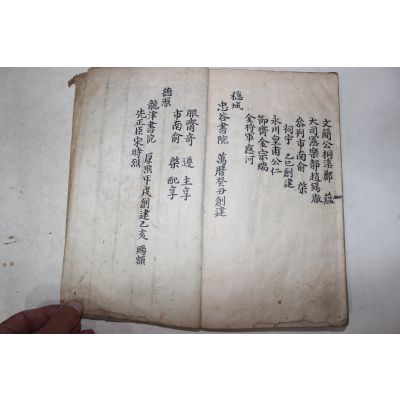 文簡公桐溪鄭 蘊
大司憲樂靜趙錫胤
參判市南俞 棨
祠宇 乙巳創建
永川皇甫公仁
節齋金宗瑞
金將軍應河
穩城
忠谷書院 萬曆癸丑創建
服齋奇 遵 主享
市南俞 棨 配享
德源
龍津書院 康熙甲戌創建乙亥 賜額
先正臣宋時烈